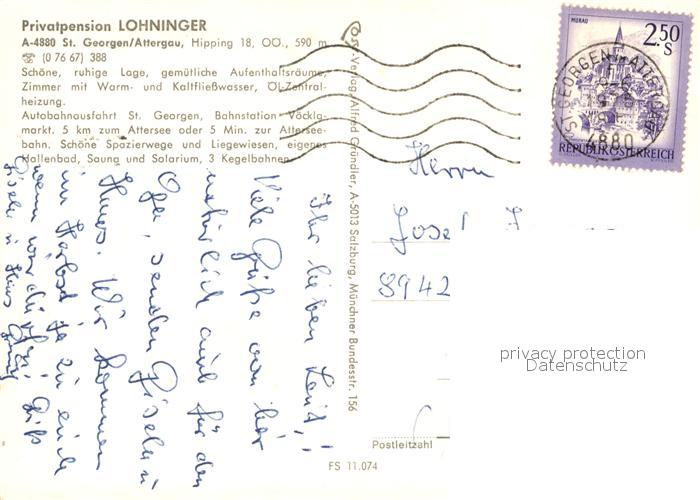 Privatpension LOHNINGER
A-4880 St. Georgen/Attergau, Hipping 18, OÖ., 590 m
☏ (0 76 67) 388
Schöne, ruhige Lage, gemütliche Aufenthaltsräume,
Zimmer mit Warm- und Kaltfließwasser, Öl-Zentral-
heizung.
Autobahnausfahrt St. Georgen, Bahnstation Vöckla-
markt. 5 km zum Attersee oder 5 Min. zur Attersee-
bahn. Schöne Spazierwege und Liegewiesen, eigenes
Hallenbad, Sauna und Salarium, 3 Kegelbahnen.
Ihr lieben Leut!
Viele Grüße von hier
natürlich auch für den
Opa, senden Gisela u
Hans. Wir kommen
im Herbst ja zu euch
wenn wir dürfen! Gruß
Gisela u Hans
-Verlag Alfred Gründler, A-5013 Salzburg, Münchner Bundesstr. 156
MURAU
2.50
S
REPUBLIK ÖSTERREICH
ST. GEORGEN i. ATTERGAU
4880
Herrn
Josef
8942
privacy protection
Datenschutz
Postleitzahl
FS 11.074